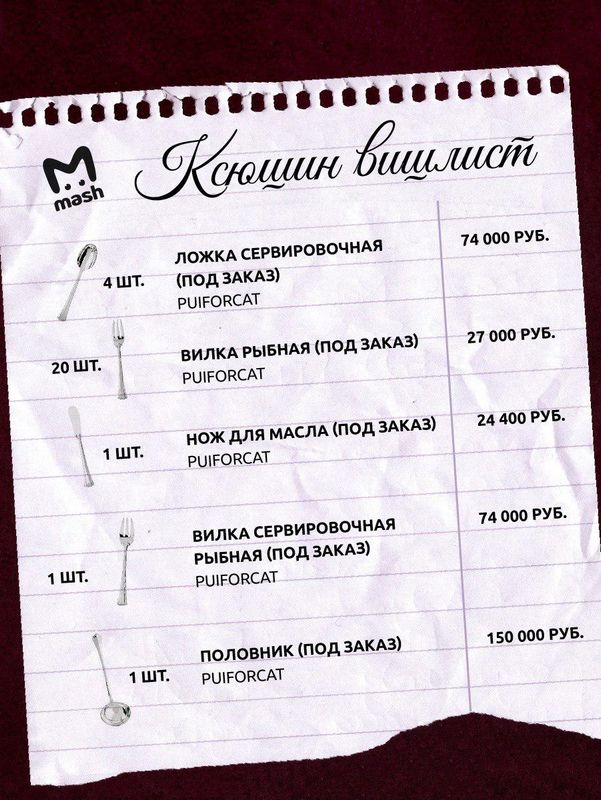 mash
Ксюшин вишлист
ЛОЖКА СЕРВИРОВОЧНАЯ
74 000 РУБ.
4 ШТ.
(ПОД ЗАКАЗ)
PUIFORCAT
ВИЛКА РЫБНАЯ (ПОД ЗАКАЗ)
27 000 РУБ.
20 ШТ.
PUIFORCAT
НОЖ ДЛЯ МАСЛА (ПОД ЗАКАЗ)
24 400 РУБ.
1 ШТ.
PUIFORCAT
ВИЛКА СЕРВИРОВОЧНАЯ
74 000 РУБ.
РЫБНАЯ (ПОД ЗАКАЗ)
1 ШТ.
PUIFORCAT
ПОЛОВНИК (ПОД ЗАКАЗ)
150 000 РУБ.
1 ШТ.
PUIFORCAT